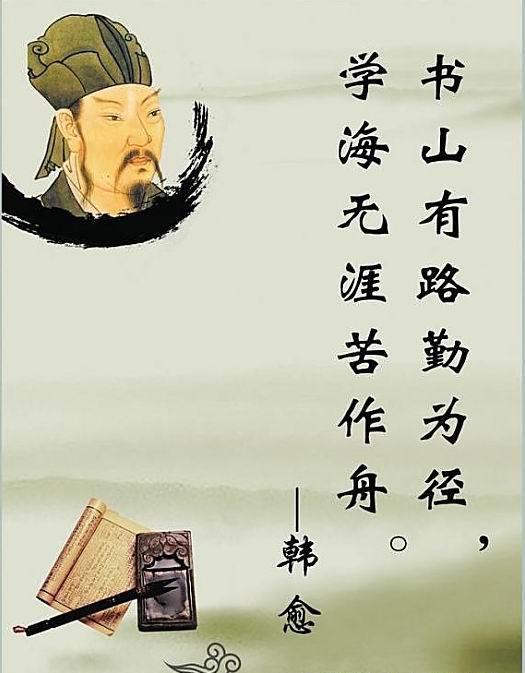 书山有路勤为径，
学海无涯苦作舟。
—韩愈